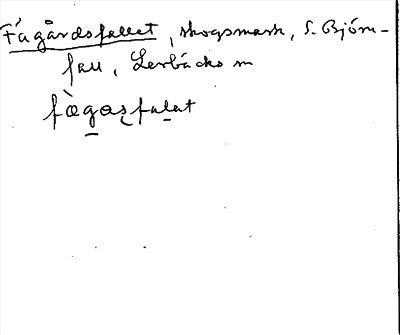 Fägårdsfallet, skogsmark, S. Björn-
fall, Lerbäcks sn
fògas̨falat